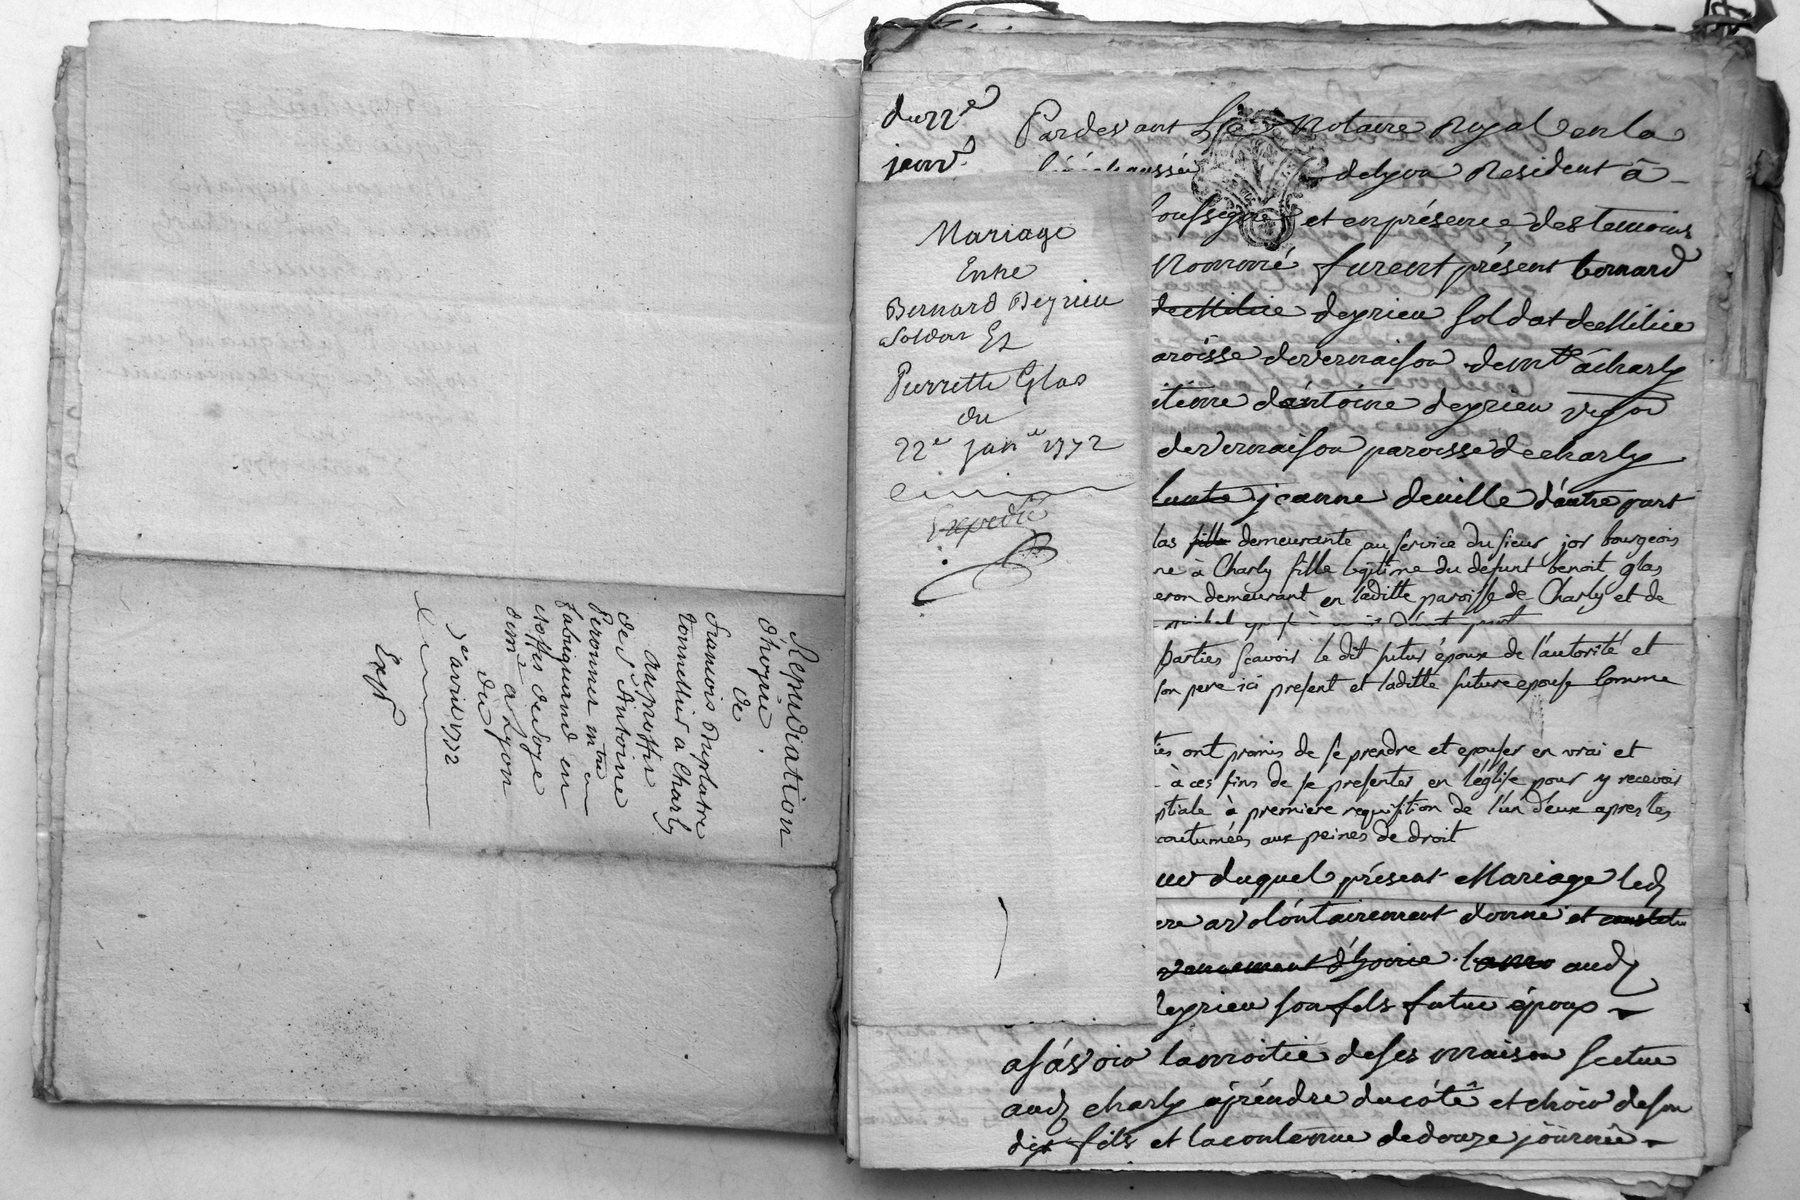 Repudiation
d'hoyrie
de
francois duplatre
tonnellier a Charly
au proffit
de S. Antoine
Peronnet m.tre
fabriquand en
etoffes de soye
dem.t a Lyon
du
7e avril 1772
Exp.é
du 22e
janv.r
Mariage
Entre
Bernard Deyrieu
soldat Et
Pierrette Glas
du
22e janer 1772
Expedié
Pardevant Le Notaire Royal en la
sénéchaussée delyon Resident à
soussigné et en présence des temoins
Nommé furent présent bernard
de Milice deyrieu soldat de Milice
aroisse de vernaison demt à charly
itime d'antoine deyrieu vigon
de vernaison paroisse de charly
funte jeanne deville d'autre part
las fille demeurante au service du sieur jos bourgeois
ne à Charly fille legitime du defunt benoit glas
eron demeurant en laditte paroisse de Charly et de
parties scavoir le dit futur époux de l'autorité et
son pere ici present et laditte future epouse Comme
ties ont promis de se prendre et epouser en vrai et
à ces fins de se presenter en l'église pour y recevoir
ptiale à premiere requisition de l'un d'eux apres les
coutumées aux peines de droit
eur duquel présent Mariage led
ere a volontairement donné et constitu
vancement d'hoirie aud
deyrieu son fils futur époux
asávoir la moitié de ses maison scitue
aud charly à préndre du côté et choix de son
dit fils et la contenue de douze journée